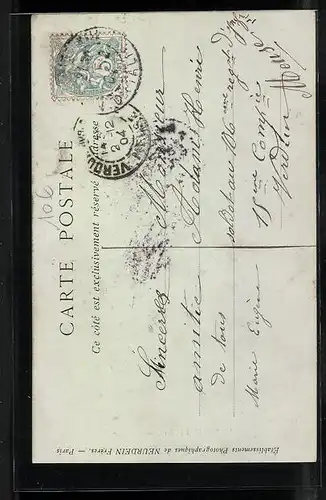 CARTE POSTALE
Ce côté est exclusivement réservé à l'adresse
106
5
VERDUN
12
04
Sincères
amitiés
de tous
Marie Eugène
Monsieur
Henri
soldat au
15me Compie
Verdun
Meuse
Etablissements Photographiques de NEURDEIN Frères. — Paris